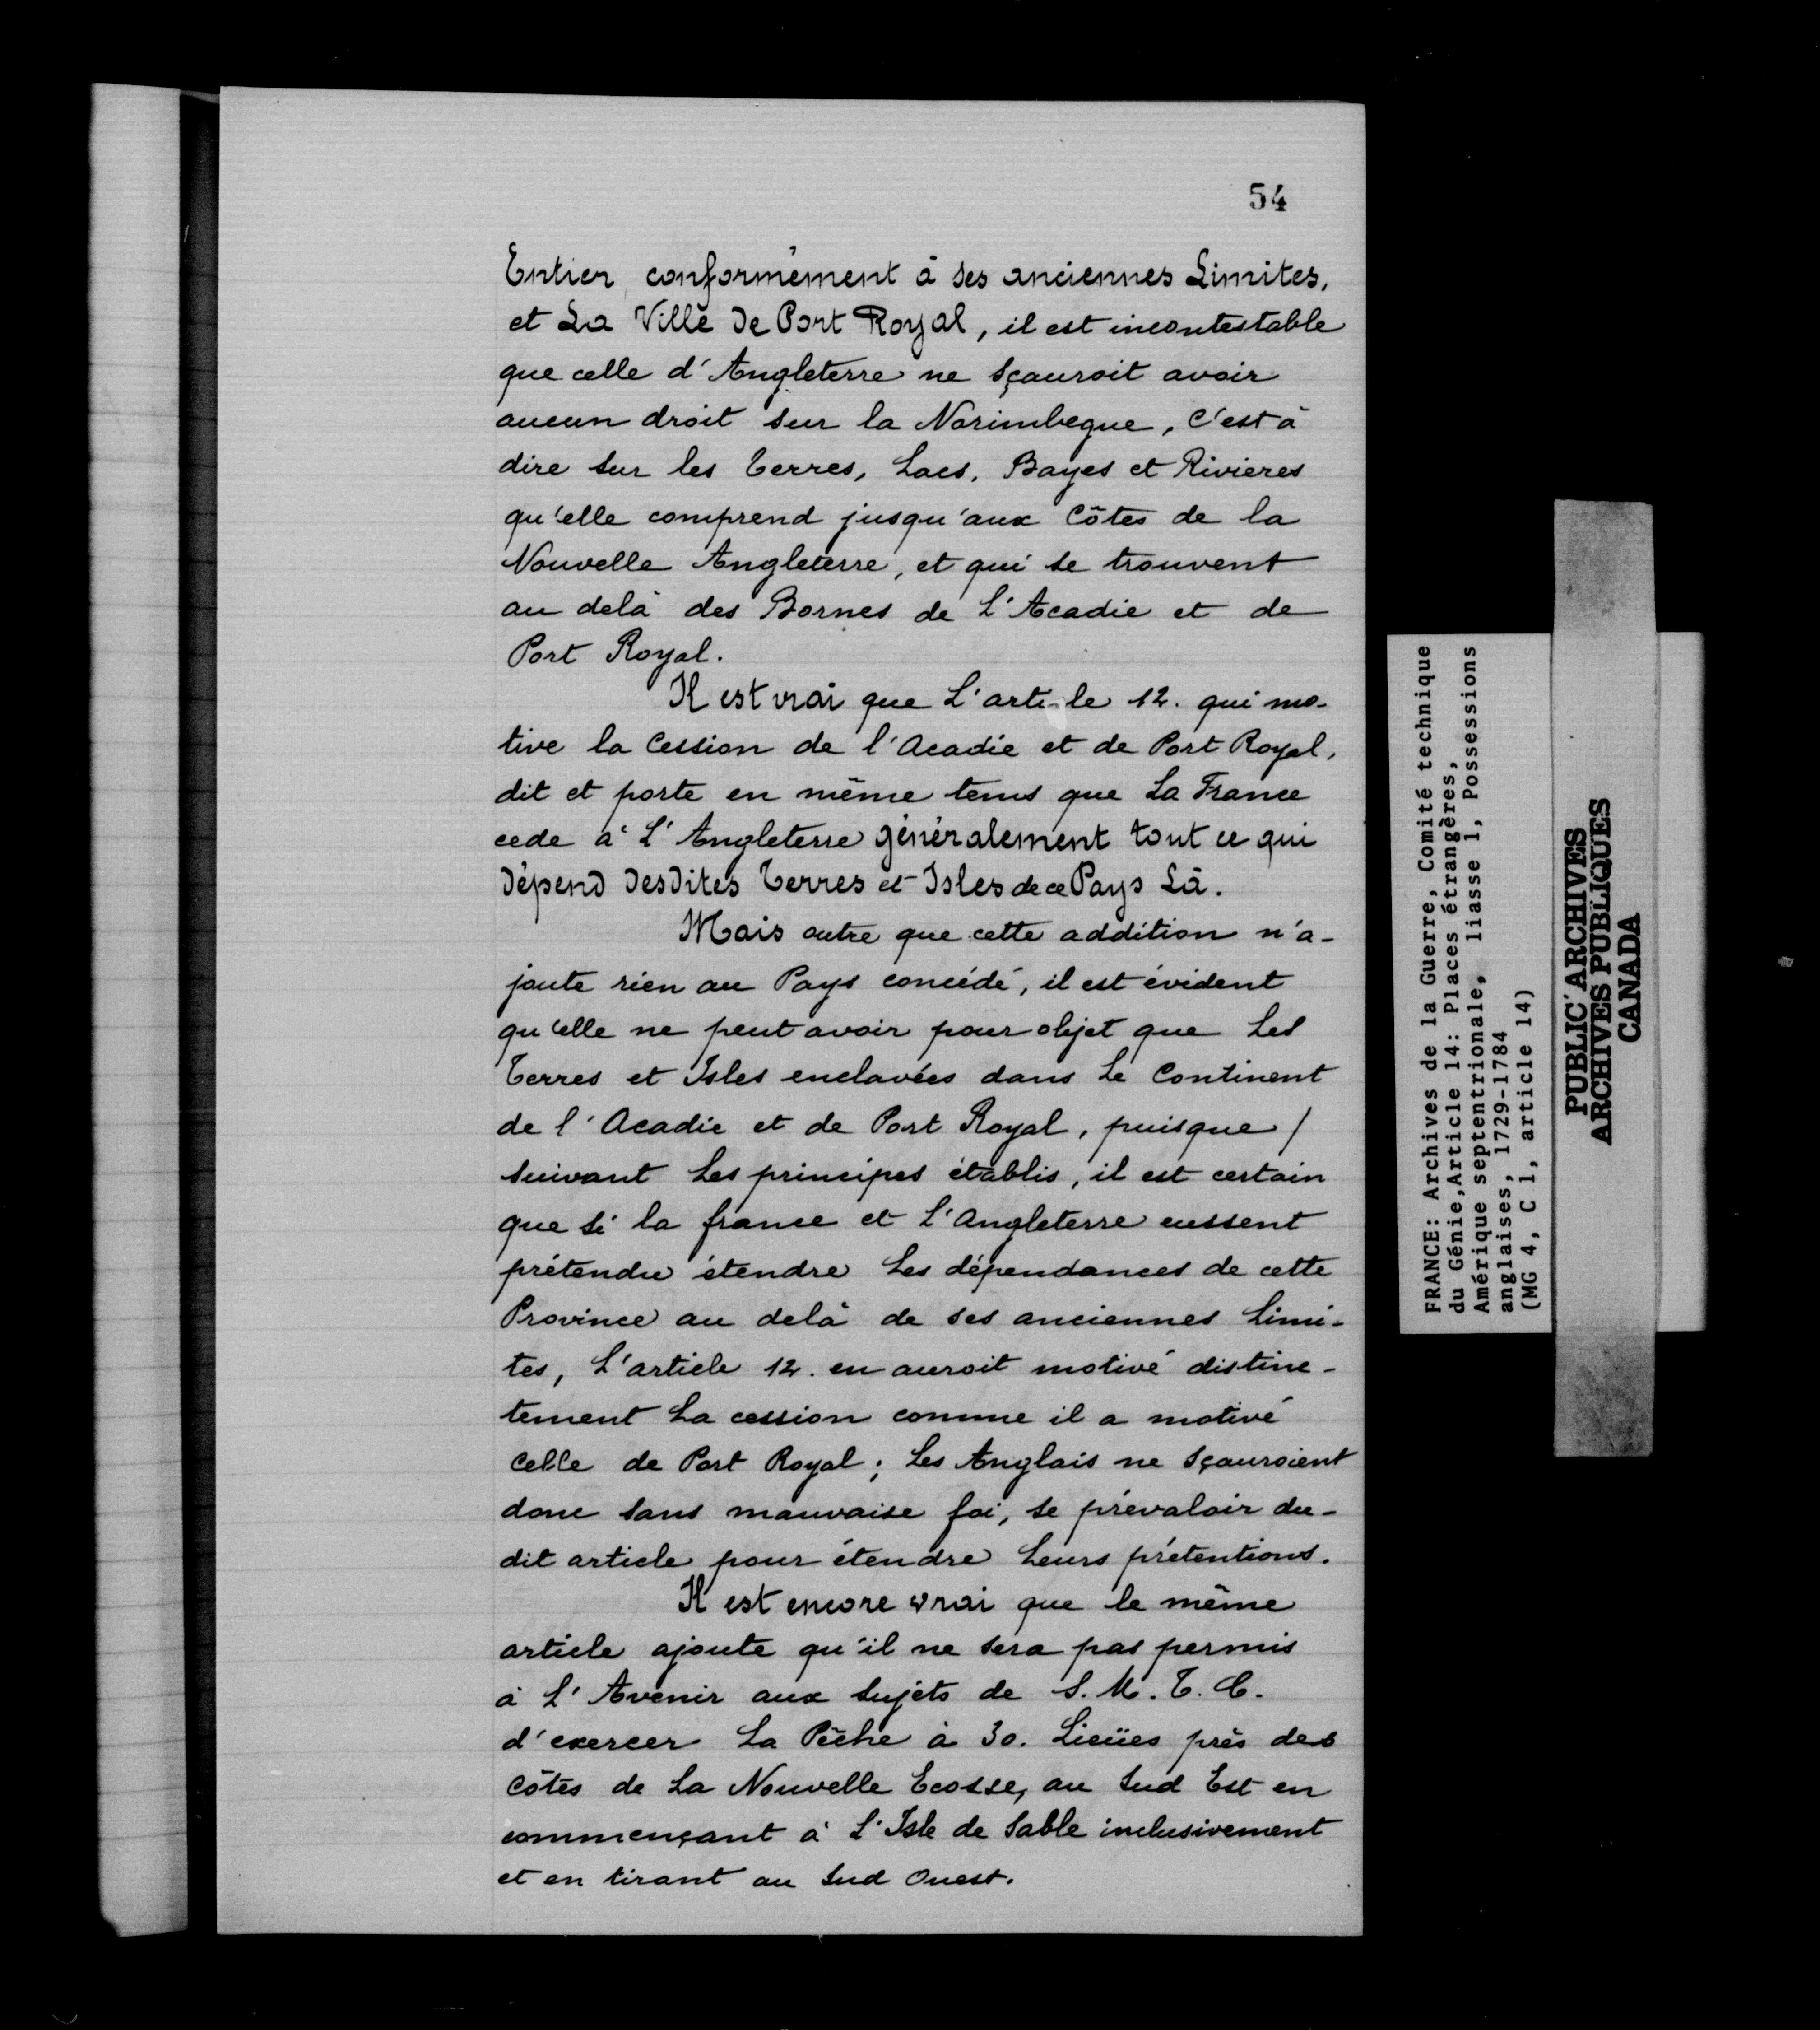 54
Entier, conformément à ses anciennes Limites,
et La Ville De Port Royal, il est incontestable
que celle d'Angleterre ne sçauroit avoir
aucun droit sur la Norimbegue, c'est à
dire sur les Terres, Lacs, Bayes et Rivieres
qu'elle comprend jusqu'aux Côtes de la
Nouvelle Angleterre, et qui se trouvent
au delà des Bornes de L'Acadie et de
Port Royal.
Il est vrai que L'article 12. qui mo-
tive la Cession de l'Acadie et de Port Royal,
dit et porte en même tems que La France
cede à L'Angleterre généralement tout ce qui
Dépend DesDites Terres et Isles de ce Pays Là.
Mais outre que cette addition n'a-
joute rien au Pays concédé, il est évident
qu'elle ne peut avoir pour objet que Les
Terres et Isles enclavées dans Le Continent
de l'Acadie et de Port Royal, puisque /
suivant Les principes établis, il est certain
que si la france et L'Angleterre eussent
prétendu étendre Les dépendances de cette
Province au delà de ses anciennes Limi-
tes, L'article 12. en auroit motivé distinc-
tement La cession comme il a motivé
Celle de Port Royal; Les Anglais ne sçauroient
donc sans mauvaise foi, se prévaloir du-
dit article pour étendre Leurs prétentions.
Il est encore vrai que le même
article ajoute qu'il ne sera pas permis
à L'Avenir aux Sujets de S. M. T. C.
d'exercer La Pêche à 30. Lieües près des
Côtes de La Nouvelle Ecosse, au Sud Est en
commençant à L'Isle de Sable inclusivement
et en tirant au Sud Ouest.
FRANCE: Archives de la Guerre, Comité technique
du Génie,Article 14: Places étrangères,
Amérique septentrionale, liasse 1, Possessions
anglaises, 1729-1784
(MG 4, C 1, article 14)
PUBLIC ARCHIVES
ARCHIVES PUBLIQUES
CANADA